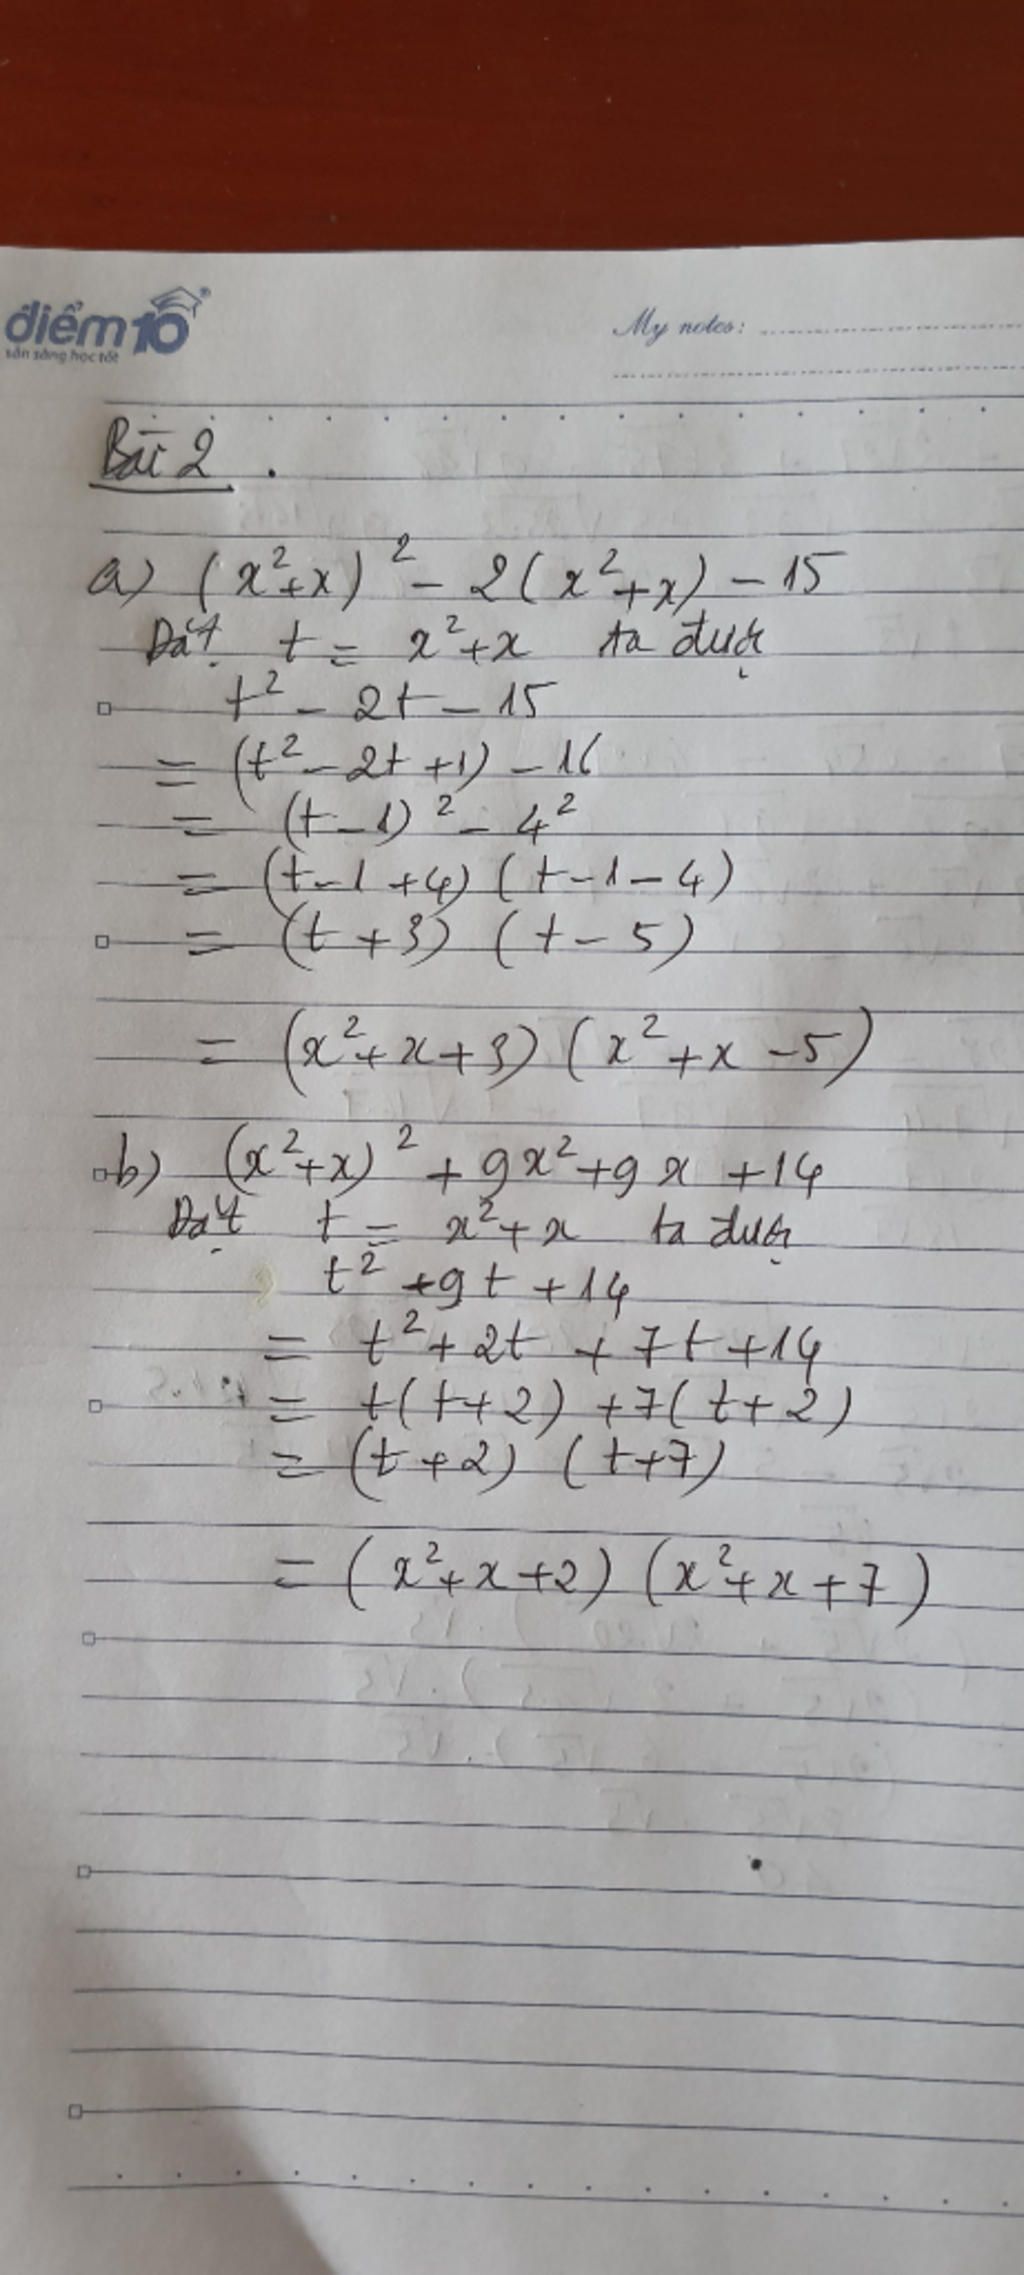 điểm10
sẵn sàng học tốt
My notes:
Bài 2.
a) (x²+x)² - 2(x²+x) - 15
Đặt t = x²+x ta được
t² - 2t - 15
= (t² - 2t + 1) - 16
= (t-1)² - 4²
= (t-1+4) (t-1-4)
= (t+3) (t-5)
= (x²+x+3) (x²+x-5)
b) (x²+x)² + 9x²+9x + 14
Đặt t = x²+x ta được
t² + 9t + 14
= t² + 2t + 7t + 14
= t(t+2) + 7(t+2)
= (t+2) (t+7)
= (x²+x+2) (x²+x+7)